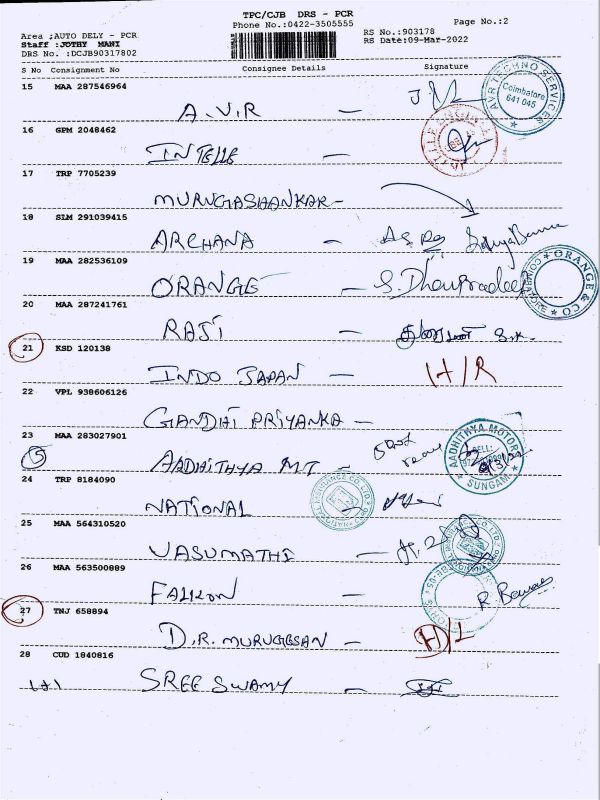 TPC/CJB DRS - PCR
Phone No.:0422-3505555
Page No.:2
Area ;AUTO DELY - PCR
Staff :JOTHY MANI
DRS No. :DCJB90317802
RS No.:903178
RS Date:09-Mar-2022
S No Consignment No Consignee Details Signature
15 MAA 287546964
A.V.R —
AVR TECHNO SERVICES
Coimbatore
641 045
16 GPM 2048462
INTELLE —
17 TRP 7705239
MURUGASHANKAR -
18 SLM 291039415
ARCHANA -
19 MAA 282536109
ORANGE - S. Dhanpradeep
ORANGE & CO
20 MAA 287241761
RAJI -
21 KSD 120138
INDO JAPAN - H/R
22 VPL 938606126
GANDHI PRIYANKA -
23 MAA 283027901
5 AADHITHYA MT -
AADHITHYA MOTORS
SUNGAM
24 TRP 8184090
NATIONAL -
25 MAA 564310520
VASUMATHI -
26 MAA 563500889
FALKON -
27 TNJ 658894
D.R. MURUGESAN - H/L
28 CUD 1840816
SREE SWAMY -